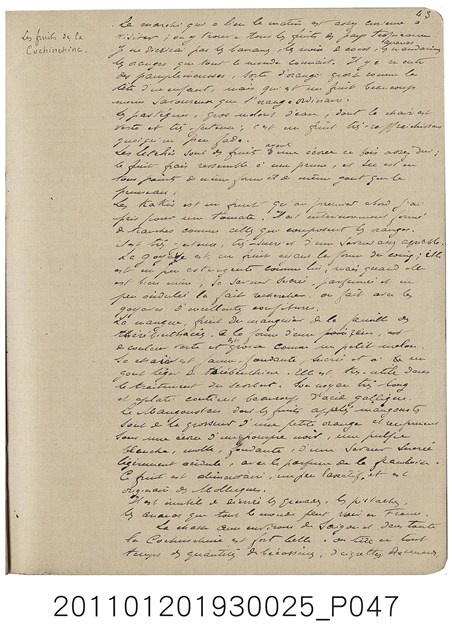 43
Les fruits de la
Cochinchine.
Le marché qui a lieu le matin est assez curieux à
visiter ; on y trouve tous les fruits des pays tropicaux
Je ne dirai pas les bananes, les noix de cocos, les mandarines
les oranges que tout le monde connait. Il y a ensuite
des pamplemousses, sorte d'orange grosse comme la
tête d'un enfant, mais qui est un fruit beaucoup
moins savoureux que l'orange ordinaire.
Les pastèques, gros melons d'eau, dont la chair est
verte et très juteuse ; c'est un fruit très rafraichissant
quoiqu'un peu fade.
Les Letchis sont des fruits ayant une écorce de bois assez dur ;
le fruit frais ressemble à une prune, et sec est en
tous points de même forme et de même gout que le
pruneau.
Les Kakis est un fruit qu'au premier abord j'ai
pris pour une tomate. Il est intérieurement formé
de tranches comme celles qui composent les oranges.
Il est très juteux, très sucré et d'une saveur assez agréable.
La goyave est un fruit ayant la forme du coing ; Elle
est un peu astringente comme lui ; mais quand elle
est bien mûre, sa saveur sucrée, parfumée et un
peu acidulée la fait rechercher. on fait avec les
goyaves d'excellentes confitures.
La mangue, fruit du manguier de la famille des
Thérébinthacées, a la forme d'une
de couleur verte et est grosse comme un petit melon.
La chair est jaune, fondante, sucrée et a un
gout léger de thérébenthine. Elle est très utile dans
le traitement du scorbut. Son noyau très long
et aplati contient beaucoup d'acide gallique.
Le Mangoustan dont les fruits appelés mangoustes
sont de la grosseur d'une petite orange et renferment
sous une écorce d'un pourpre noir, une pulpe
blanche, molle, fondante, d'une saveur sucrée
légèrement acidulée, avec le parfum de la framboise.
Ce fruit est alimentaire, un peu laxatif, et est
originaire des Molluques.
Il est inutile de décrire les grenades, les pistaches,
les ananas que tout le monde peut voir en France.
La chasse aux environs de Saïgon et dans toute
la Cochinchine est fort belle. on tire en tout
temps des quantités de bécassines, d'aigrettes
201101201930025_P047